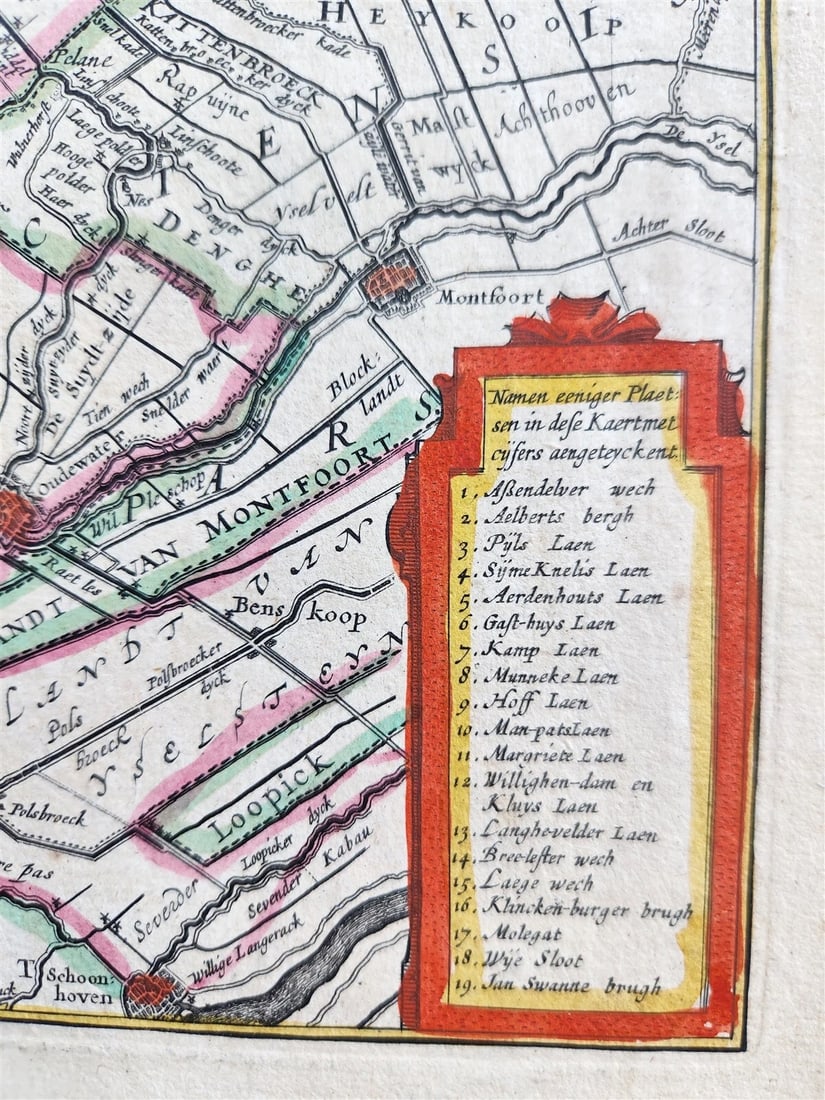 HEYKOOP
IS
KATTENBROECK
Katten-broecker dyck
Kattenbroecker kade
Snel kade
Pelane
Linschoote
Rapuijne
Wulnerhorst
Laege polder
Hooge polder
Haer dyck
Linschoote
Nes
Mastwyck
Achthooven
De Ysel
Yselvelt
Denger dyck
DENGHE
Achter Sloot
Montfoort
De Suydt-zijde
Noort syder dyck
Tien wech
Snelder waert
Blocklandt
Oudewater
Wilpleschop
LANDT VAN MONTFOORT
Raetles
Benskoop
LANDT VAN YSELSTEYN
Polsbroecker dyck
Polsbroeck
Loopick
Polsbroeck
Loopicker dyck
Sevender Kabau
Sevender
Willige Langerack
T Schoonhoven
Namen eeniger Plaet:
sen in dese Kaert met
cijfers aengeteyckent.
1. Aßendelver wech
2. Aelberts bergh
3. Pijls Laen
4. Sijme Knelis Laen
5. Aerdenhouts Laen
6. Gast-huys Laen
7. Kamp Laen
8. Munneke Laen
9. Hoff Laen
10. Man-pats Laen
11. Margriete Laen
12. Willighen-dam en
Kluys Laen
13. Langhe-velder Laen
14. Bree-lester wech
15. Laege wech
16. Klincken-burger brugh
17. Molegat
18. Wije Sloot
19. Jan Swanne brugh